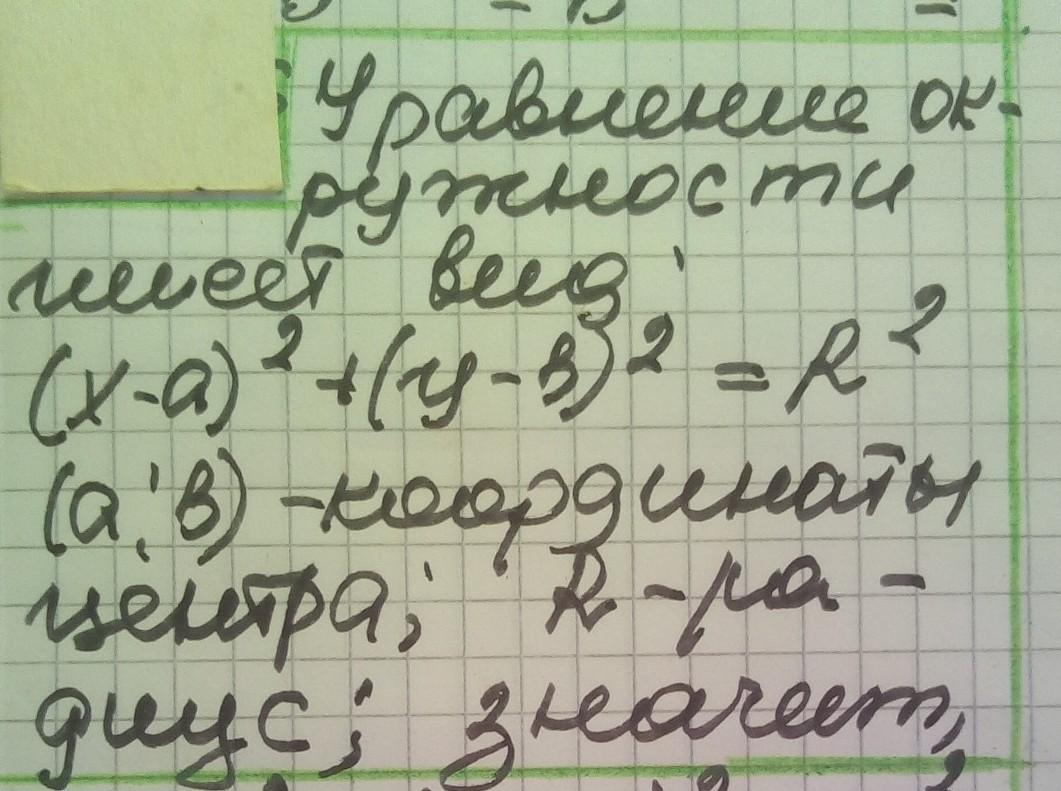 Уравнение ок-
ружности
имеет вид:
(x-a)² + (y-в)² = R²
(a; в) - координаты
центра; R - ра-
диус; значит,